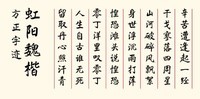 辛苦遭逢起一经
干戈寥落四周星
山河破碎风飘絮
身世浮沉雨打萍
惶恐滩头说惶恐
零丁洋里叹零丁
人生自古谁无死
留取丹心照汗青
虹阳魏楷
方正字迹